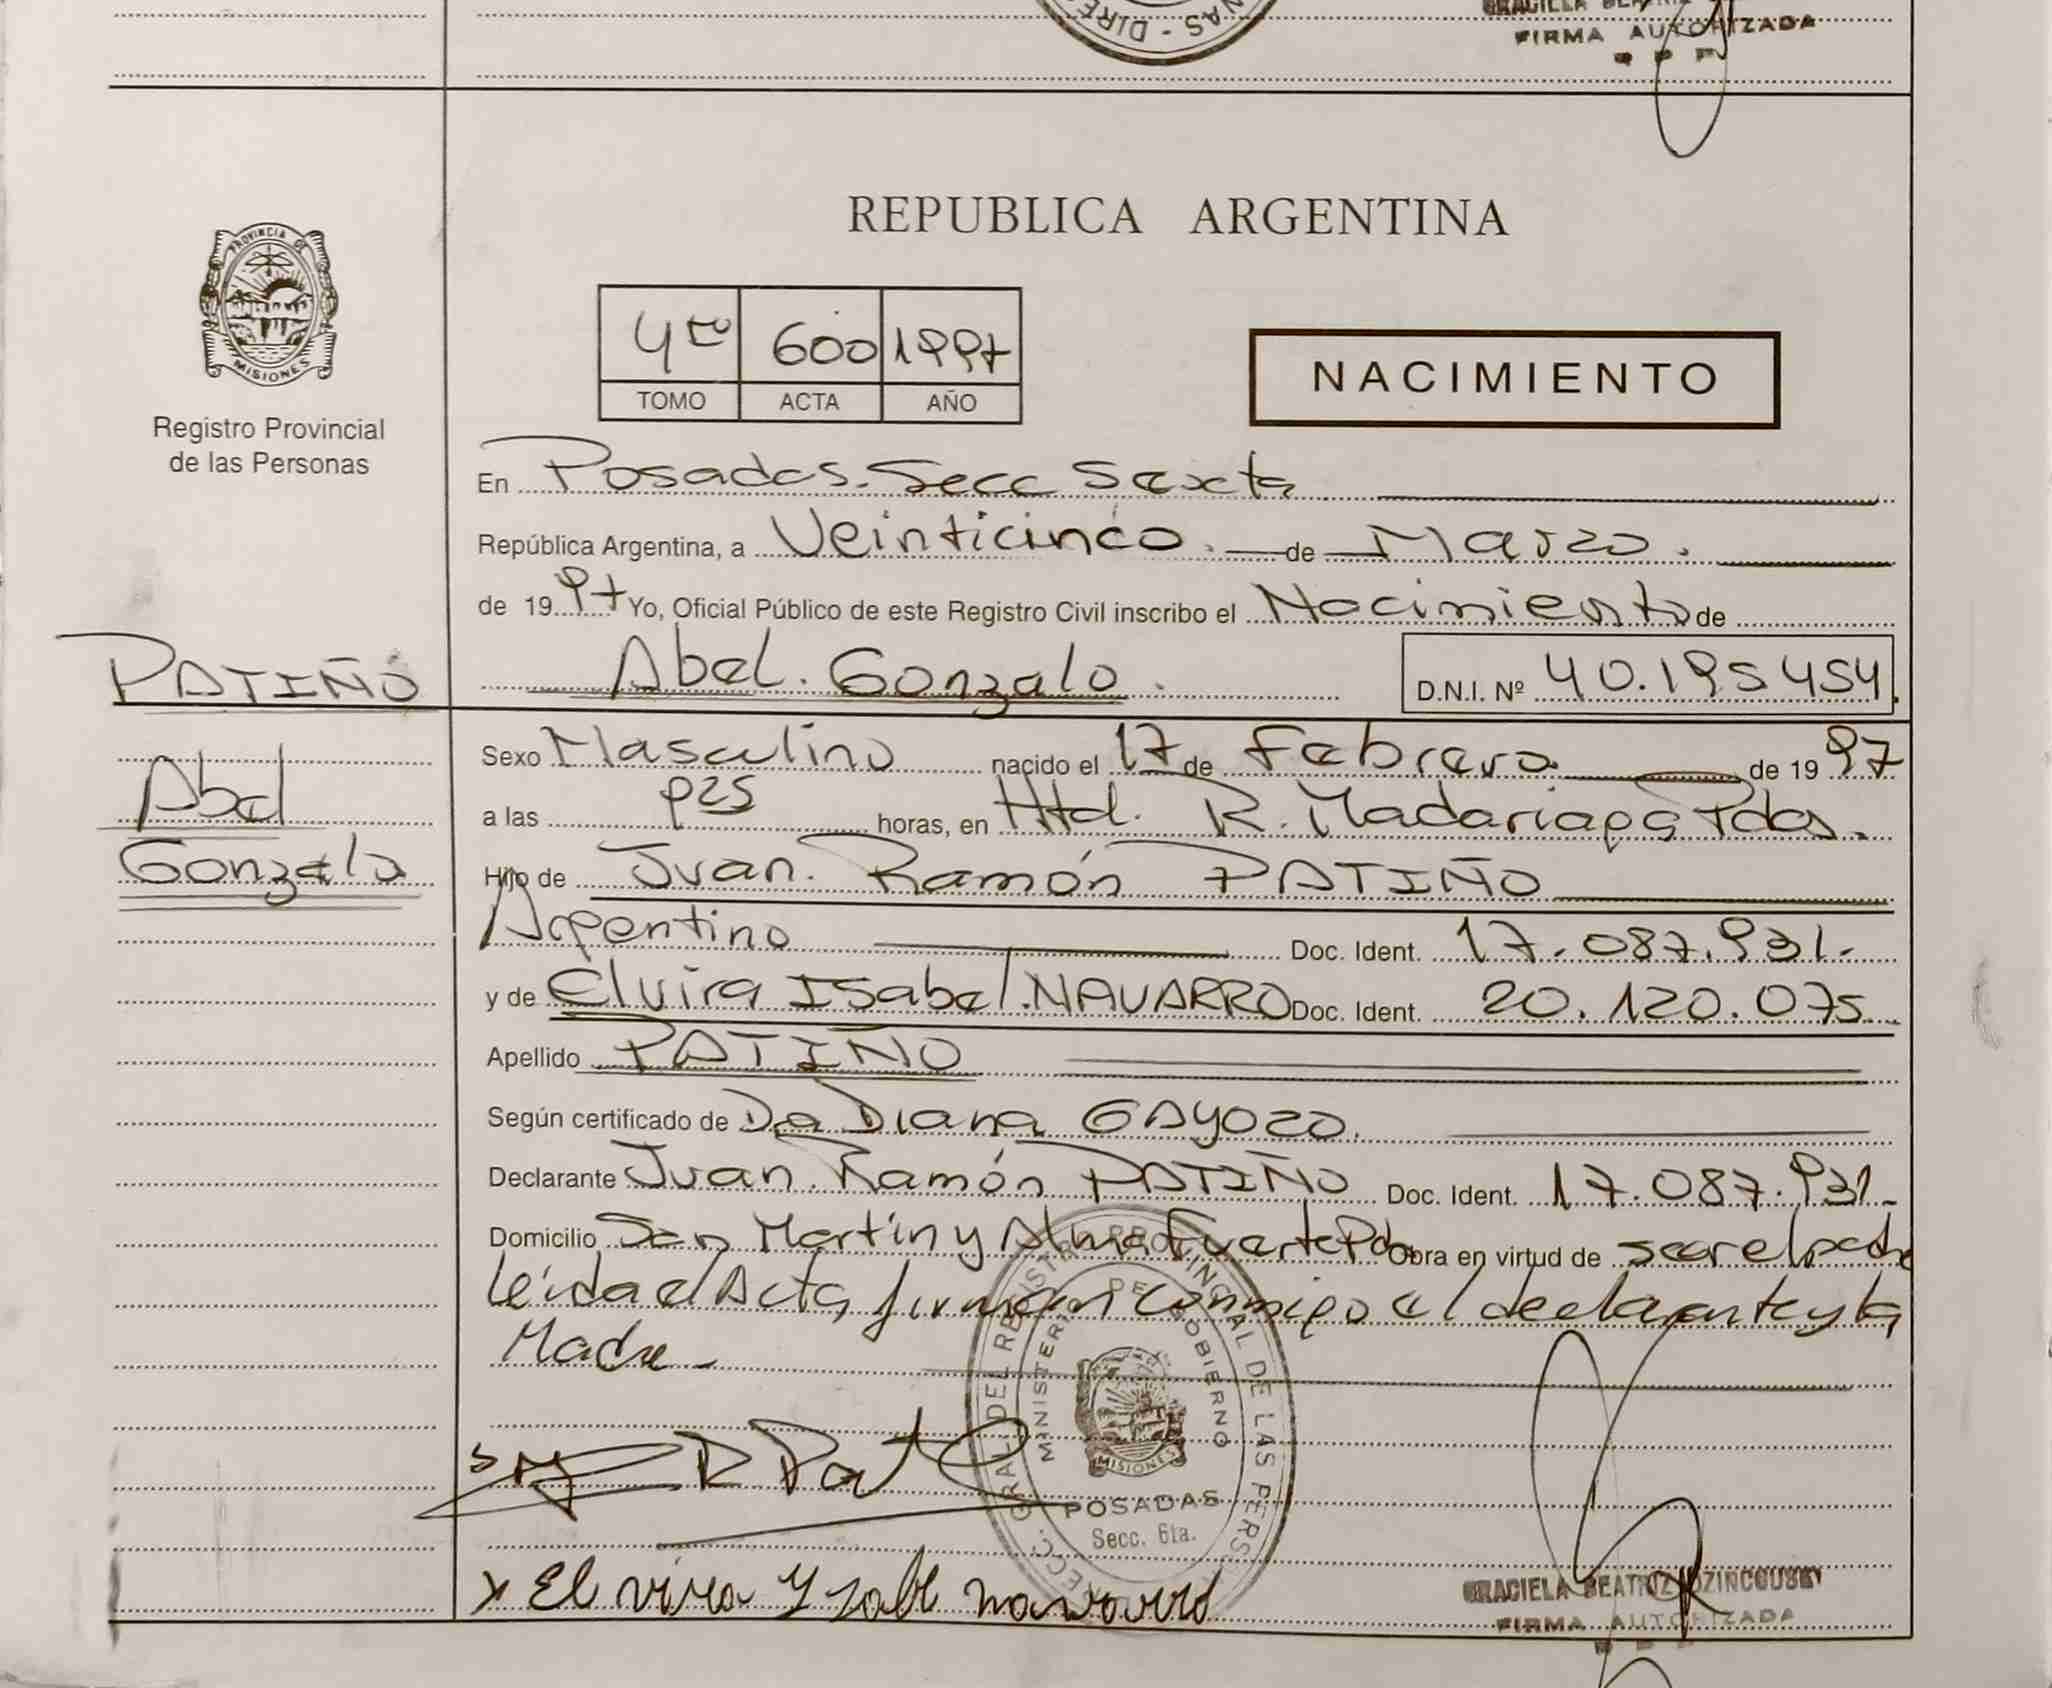 NAS - DIRE
GRACIELA BEATRIZ
FIRMA AUTORIZADA
R P P
REPUBLICA ARGENTINA
PROVINCIA DE
MISIONES
Registro Provincial
de las Personas
4to 600 1997
TOMO ACTA AÑO
NACIMIENTO
En Posadas. Secc Sexta
República Argentina, a Veinticinco. de Marzo.
de 1997 Yo, Oficial Público de este Registro Civil inscribo el Nacimiento de
PATIÑO
Abel. Gonzalo. D.N.I. Nº 40.195454
Abel
Gonzalo
Sexo Masculino nacido el 17 de Febrero de 1997
a las 925 horas, en Htal. R. Madariaga Pdas.
Hijo de Juan. Ramón PATIÑO
Argentino Doc. Ident. 17.087.931.-
y de Elvira Isabel. NAVARRO Doc. Ident. 20.120.075
Apellido PATIÑO
Según certificado de Da Diana GAYOZO.
Declarante Juan. Ramón PATIÑO Doc. Ident. 17.087.931.-
Domicilio San Martin y Alma Fuerte Pdas Obra en virtud de ser el padre
Leída el Acta, firman conmigo el declarante y la
Madre -
GRAL. DEL REGISTRO PROVINCIAL DE LAS PERS
MINISTERIO DE GOBIERNO
MISIONES
POSADAS
Secc. 6ta.
R Pat
x Elvira Yzabel navarro
GRACIELA BEATRIZ
FIRMA AUTORIZADA